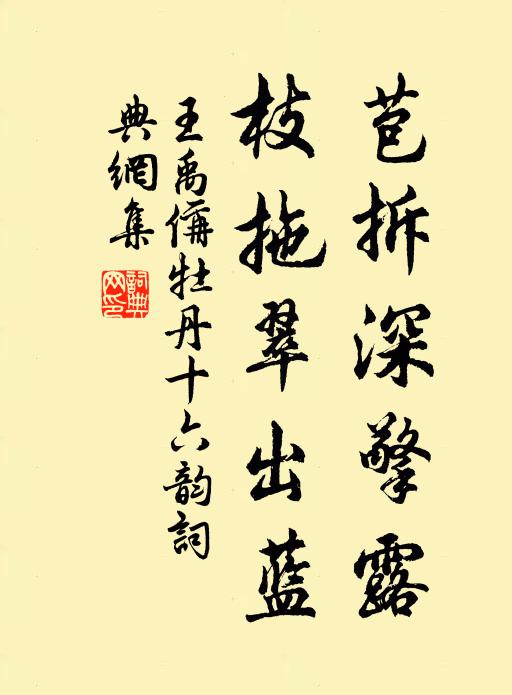 苞拆深擎露
枝拖翠出藍
王禹偁牡丹十六韵詞
典網集
詞典
网印